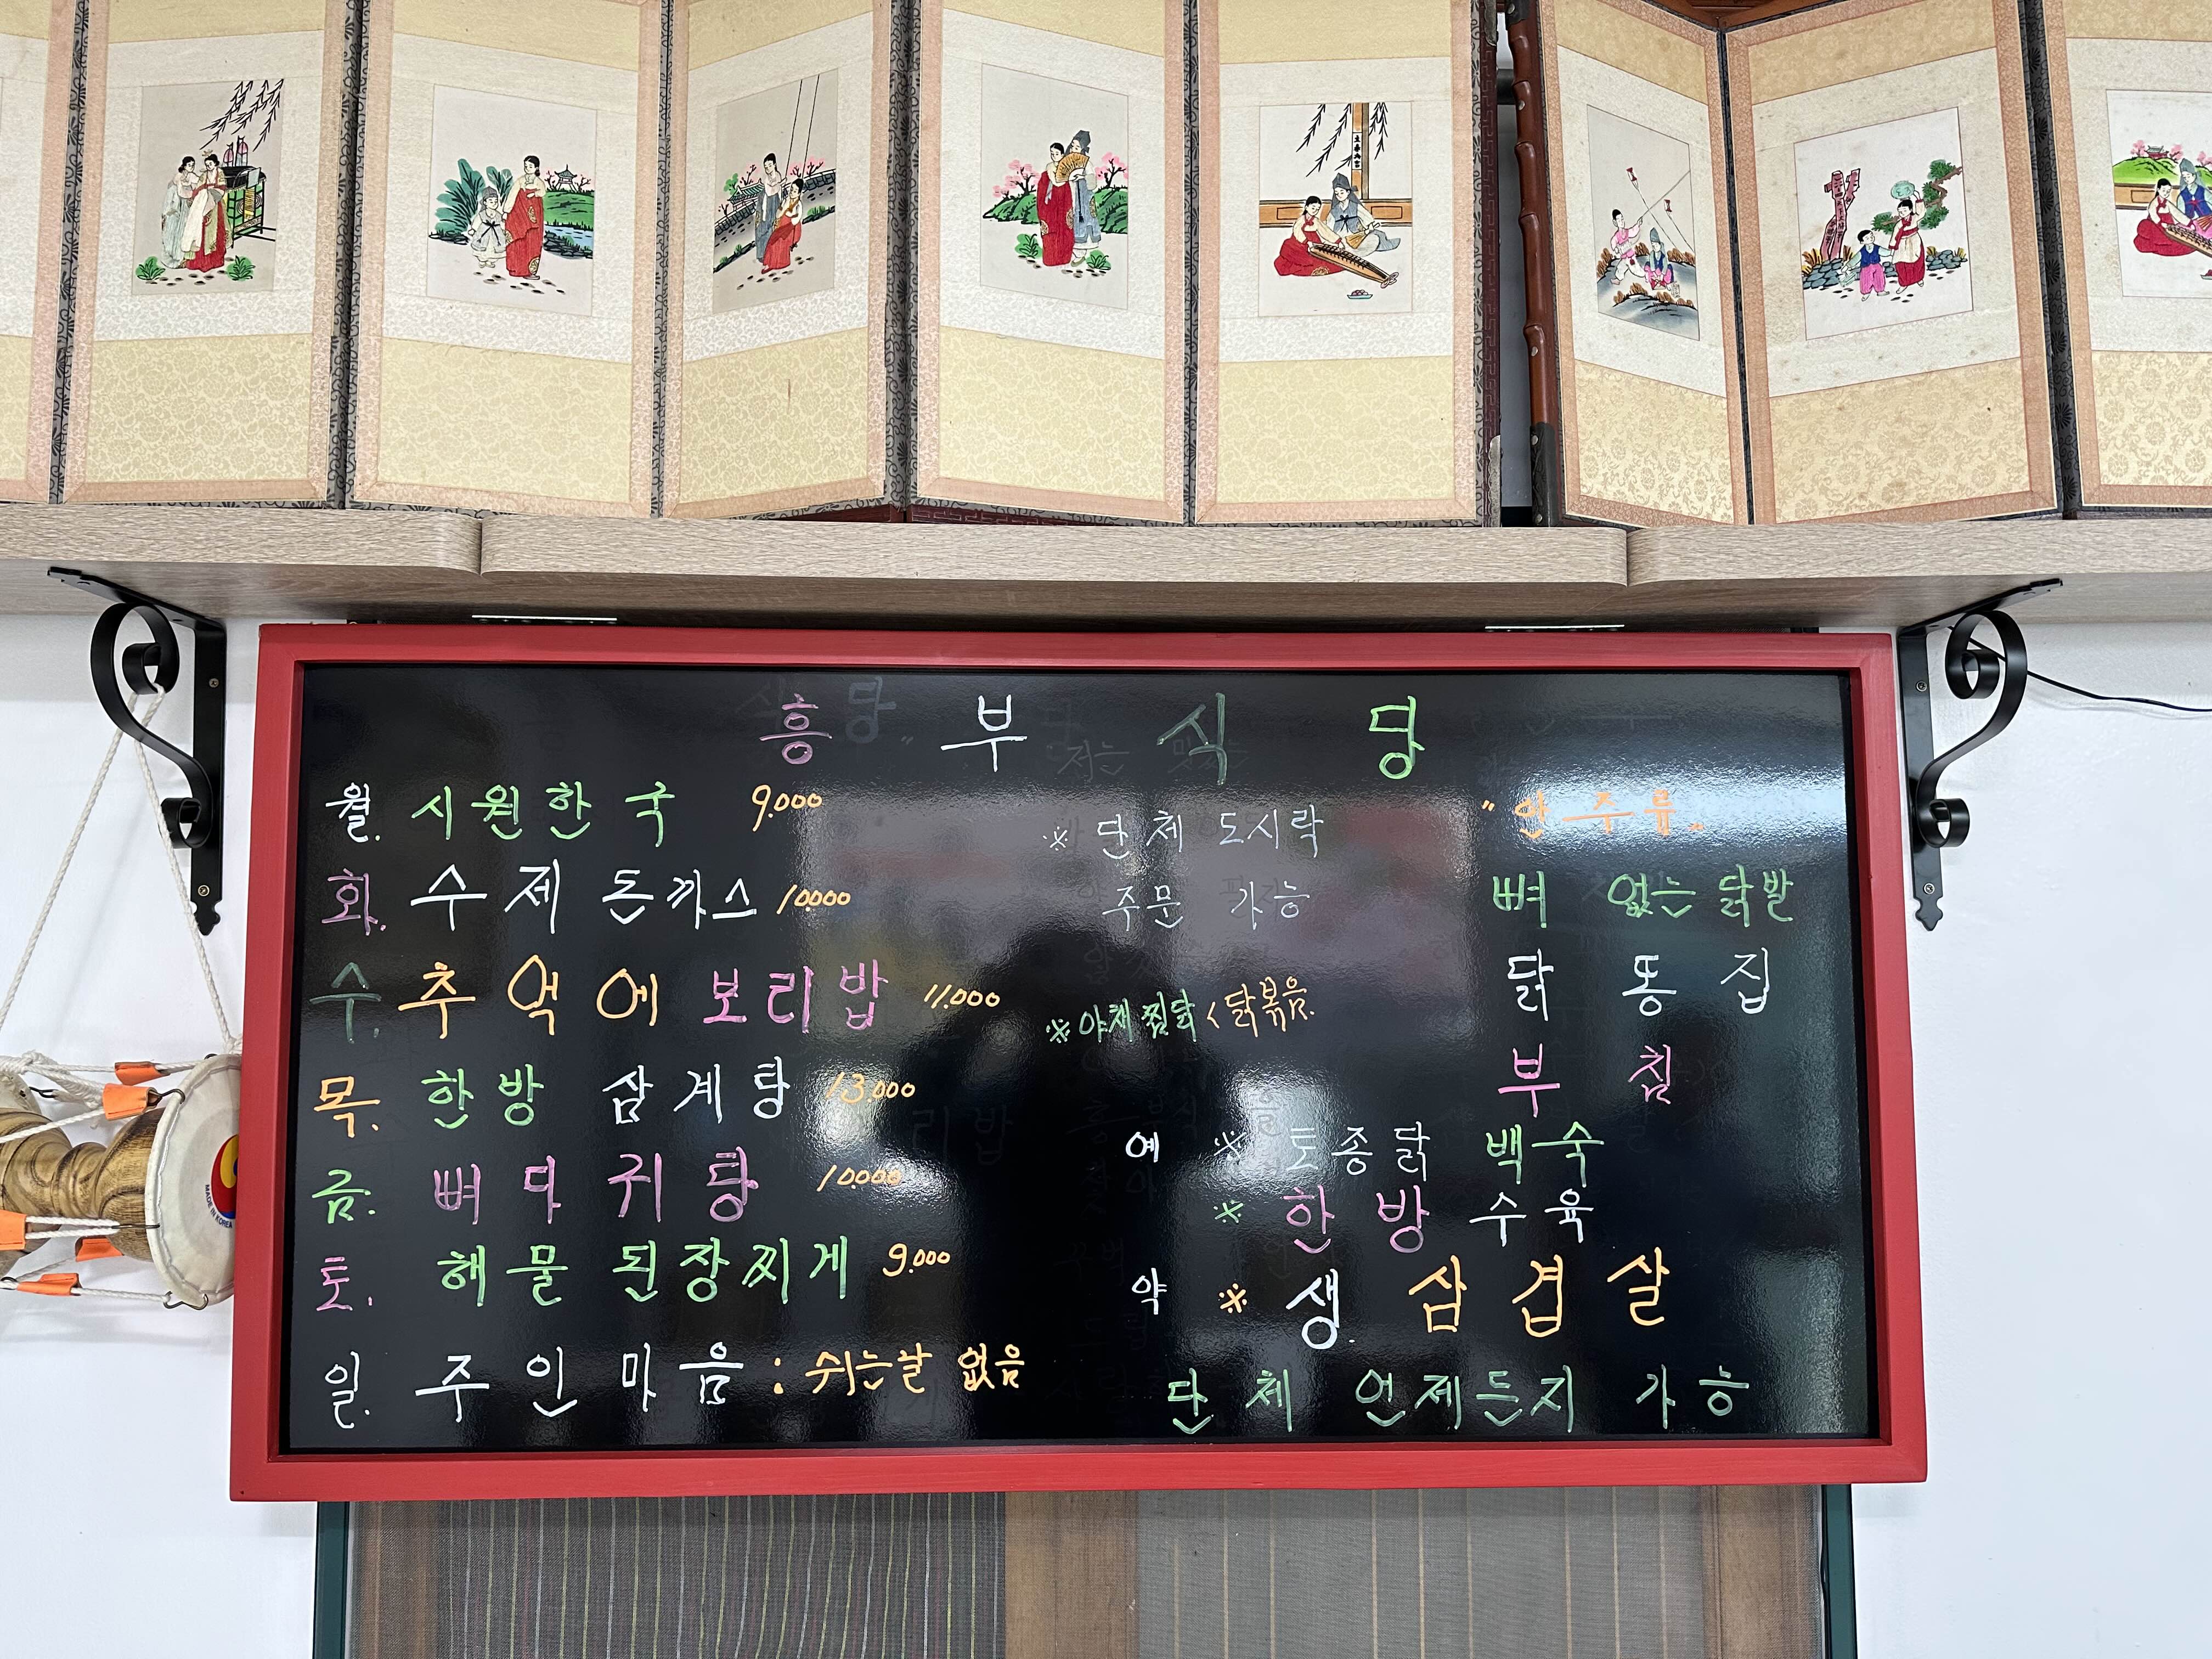 흥 부 식 당
월. 시원한 국 9.000
화. 수제 돈까스 10.000
수. 추억에 보리밥 11.000
목. 한방 삼계탕 13.000
금. 뼈다귀탕 10.000
토. 해물 된장찌게 9.000
일. 주인마음 : 쉬는날 없음
※ 단체 도시락
주문 가능
※야채찜닭 < 닭볶음.
"안주류"
뼈 없는 닭발
닭똥집
부침
예 ※ 토종닭 백숙
※ 한방 수육
약 ※ 생. 삼겹살
단체 언제든지 가능
MADE IN KOREA